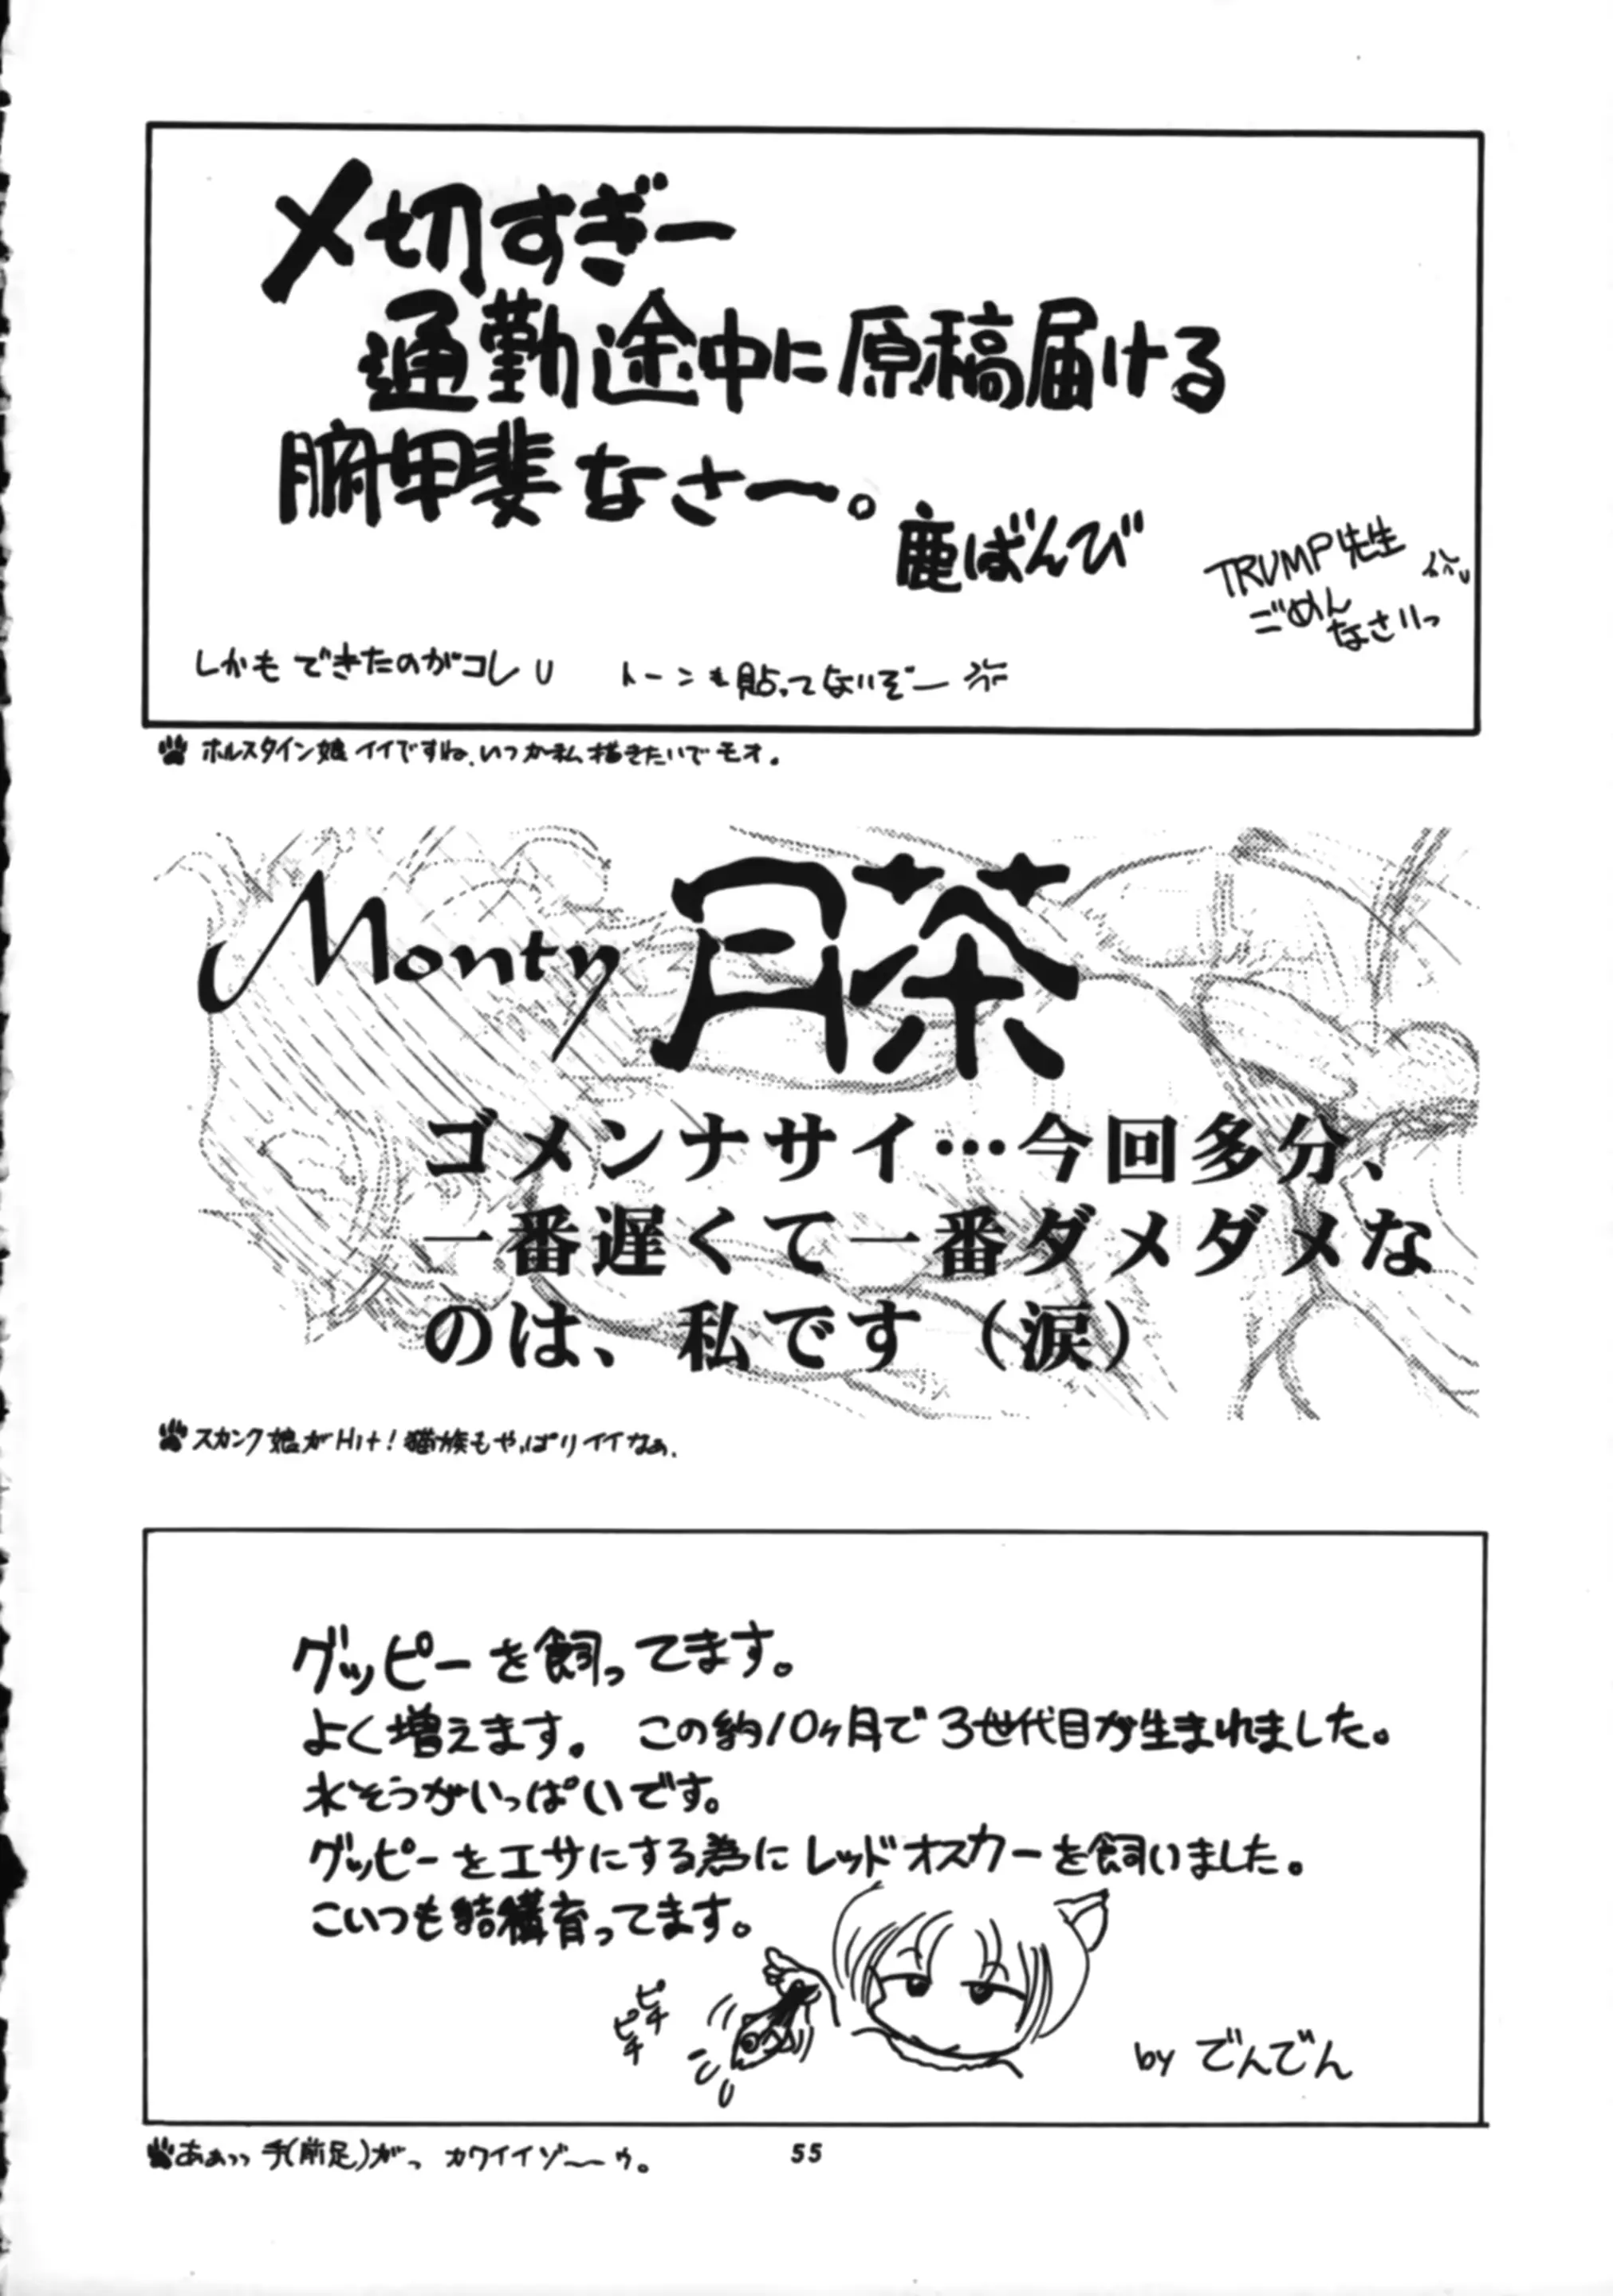 〆切すぎー
通勤途中に原稿届ける
腑甲斐なさー。
鹿ばんび
TRUMP先生
ごめん
なさいっ
しかもできたのがコレ トーンも貼ってないぞー
ホルスタイン娘イイですね.いつか私描きたいでモオ。
Monty 月茶
ゴメンナサイ…今回多分、
一番遅くて一番ダメダメな
のは、私です（涙）
スカンク娘がHit!猫族もやっぱりイイなぁ.
グッピーを飼ってます。
よく増えます。 この約10ヶ月で3世代目が生まれました。
水そうがいっぱいです。
グッピーをエサにする為にレッドオスカーを飼いました。
こいつも結構育ってます。
ピチ
ピチ
by でんでん
あぁっっ 手(前足)がっ カワイイゾーっ。
55